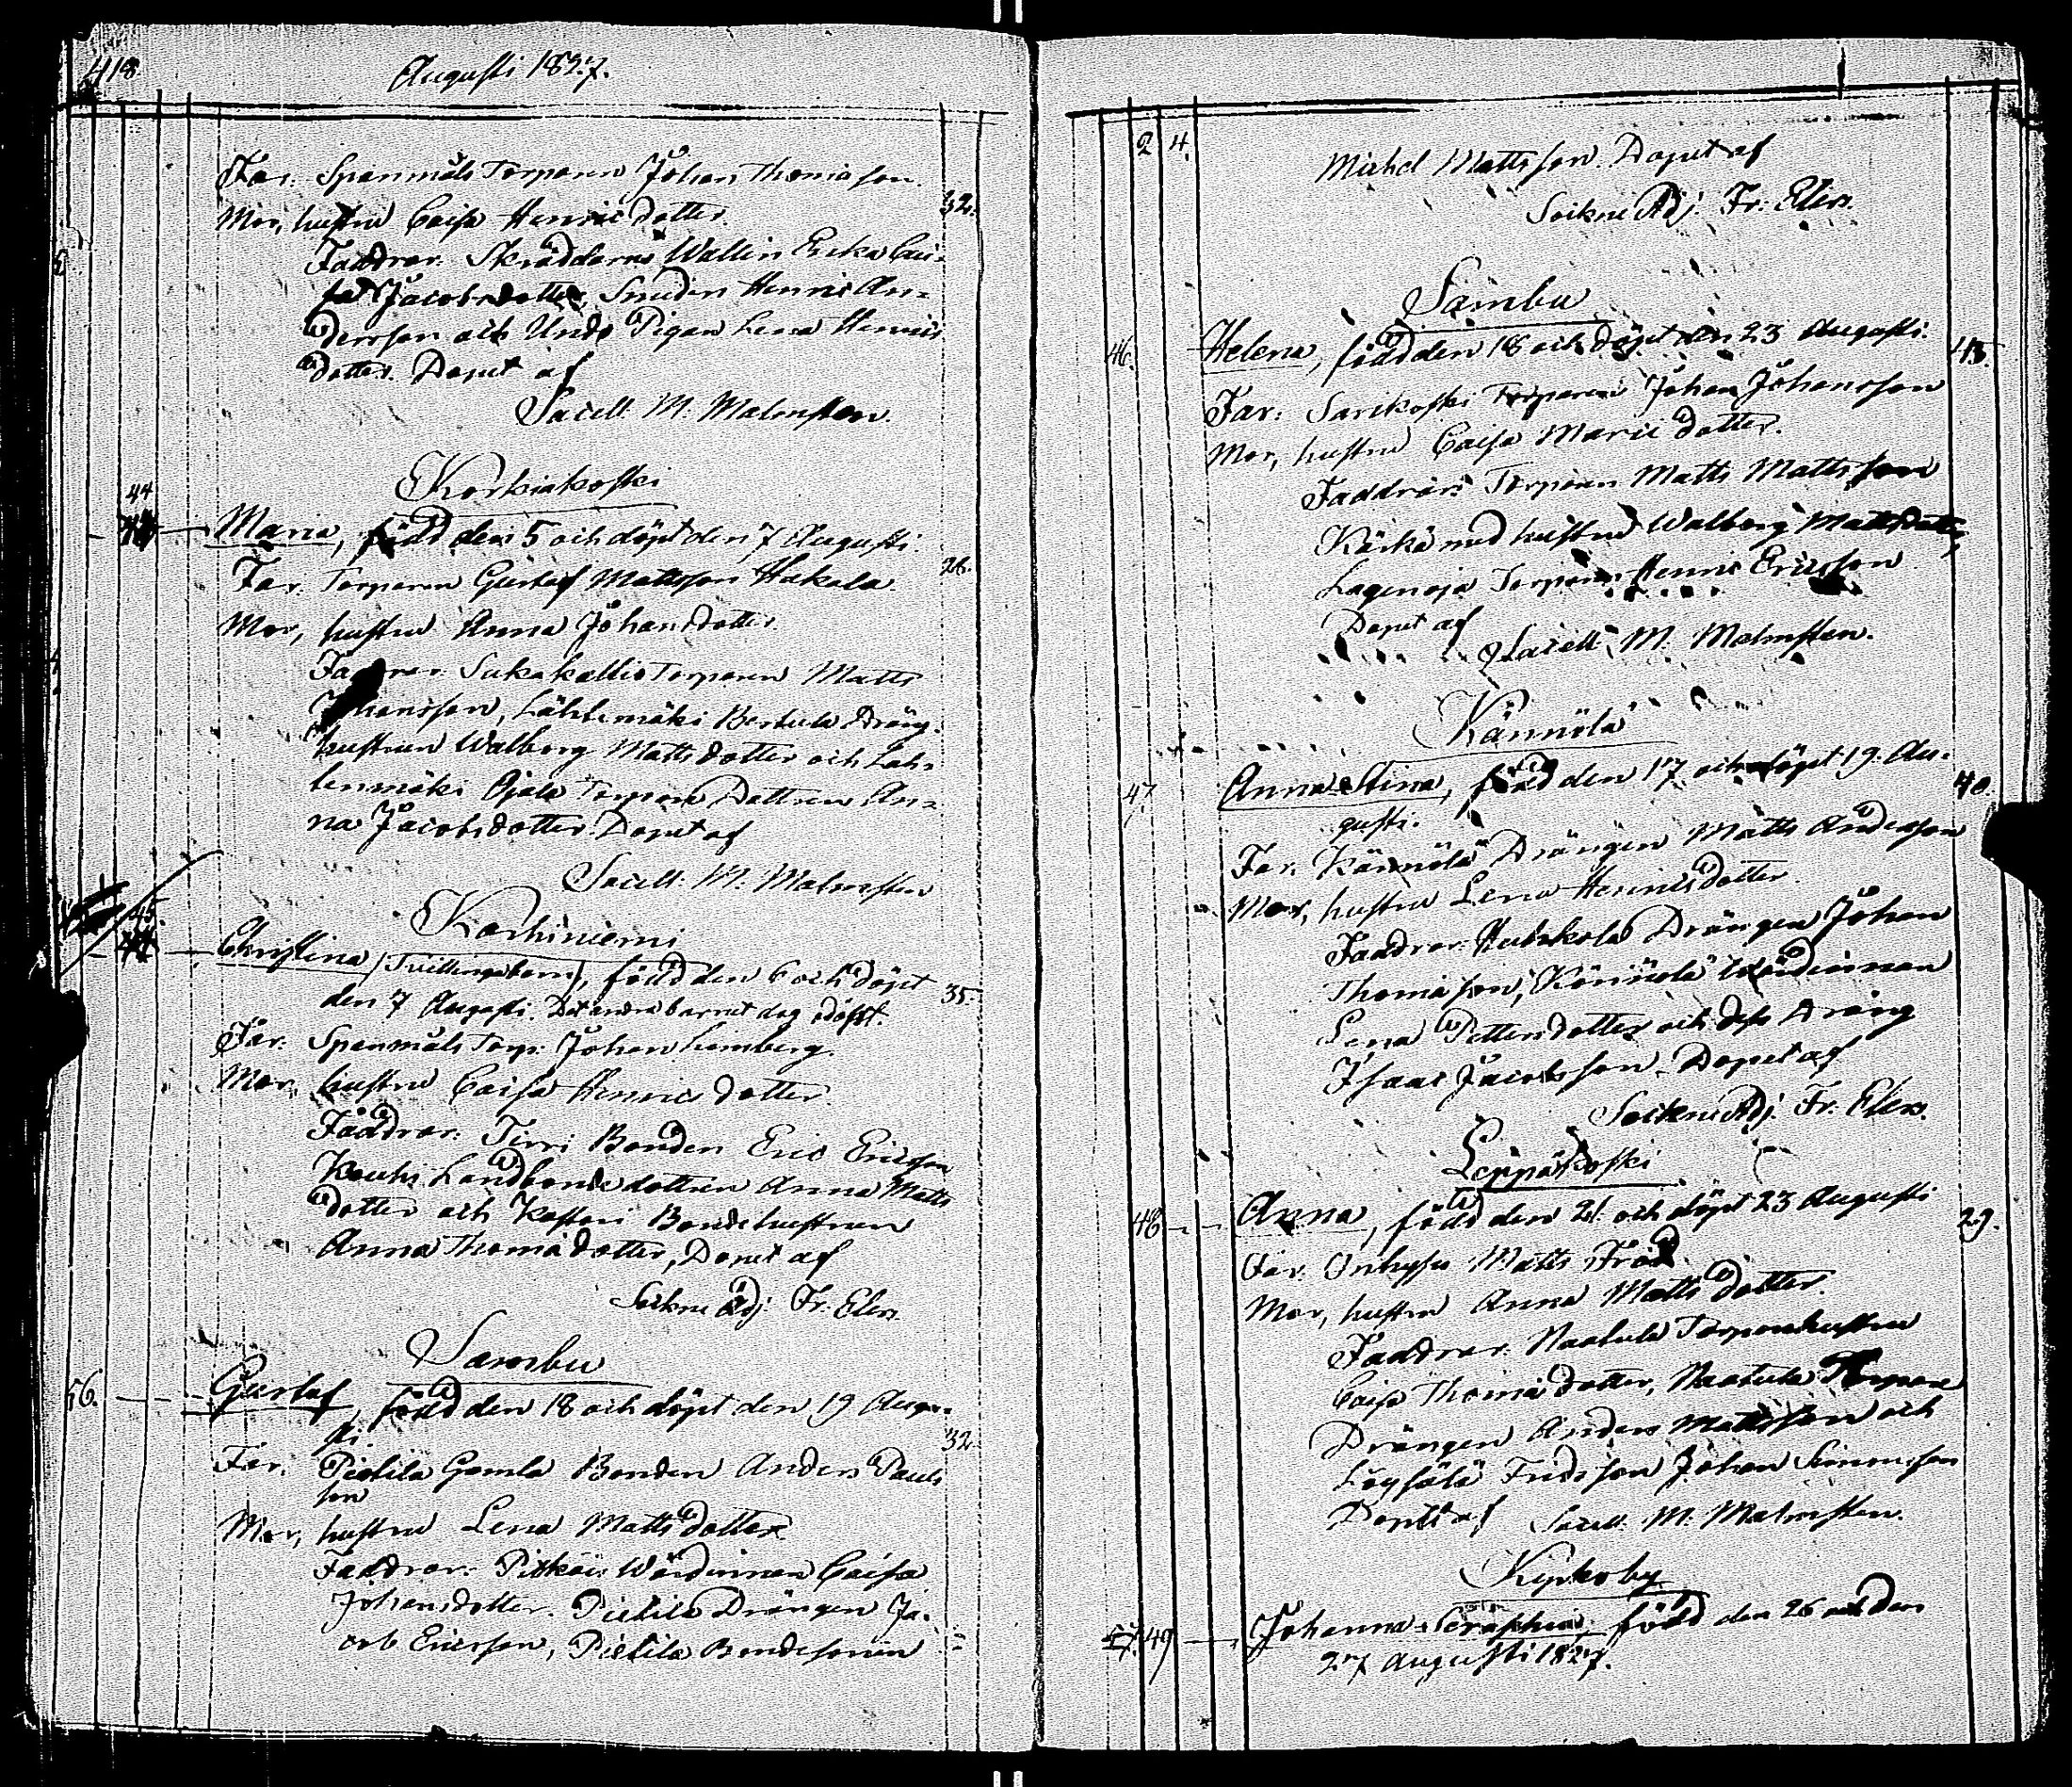 418
Augusti 1827.
Far. Spanmäls Torparen Johan Thomasson.
Mor, hustru Caisa Henrics dotter. 32.
Faddrar. Skräddaren Wallin Erika Cai-
sa Jacobsdotter, Smeden Henric An-
dersson och Pigan Lena Henrics
dotter. Döpet af
Sacell. M. Malmsten.
Korkiakoski
44
Maria, född den 5 och döpt den 7 Augusti.
Far. Torparen Gustaf Mattsson Hakala. 26.
Mor, hustru Anna Johansdotter
Faddrar. Sukakallio Torparen Matts
Johansson, Lähtemäki Bertula Dräng
hustrun Walborg Mattsdotter och Läh-
tenmäki Ojala Torpare Dottren An-
na Jacobsdotter. Döpet af
Sacell. M. Malmsten
Korkiniemi
45.
Christina (Tvillingebarn), född den 6 och döpet 35.
den 7 Augusti. Det andra barnet dog odöpt.
Far. Spanmäls Torp. Johan Lemberg.
Mor, hustru Caisa Henrics dotter.
Faddrar. Tirri Bonden Eric Ericsson
Kouhi Landbonde dottren Anna Matts
dotter och Kastari Bondehustrun
Anna Thomædotter, Döpet af
Sockne Adj. Fr. Elers.
Sambu
56. Gustaf, född den 18 och döpt den 19 Augu-
sti. 32.
Far. Pietila Gamla Bonden Anders Pauls
son
Mor, hustru Lena Mattsdotter
Faddrar. Pitkäis Wärdinnan Caisa
Johansdotter. Pietila Drängen Ja-
cob Ericsson, Pietila Bondesonen
2 4.
Michel Mattsson. Döpet af
Sockne Adj. Fr. Elers.
Sambu
46. Helena, född den 18 och döpt den 23 Augusti. 43.
Far. Sarekoski Torparen Johan Johansson
Mor, hustru Caisa Marie dotter.
Faddrar. Torparen Matts Mattsson
Kärkä med hustru Walborg Mattsdotter,
Lagenoja Torparen Henric Ericsson
Döpet af
Sacell. M. Malmsten.
Kännölä
47. Anna Stina, född den 17 och döpt 19. Au- 40.
gusti.
Far. Kännölä Drängen Matts Andersson
Mor, hustru Lena Henricsdotter.
Faddrar. Huhkola Drängen Johan
Thomasson, Kännölä Wärdinnan
Lena Pettersdotter och dess Dräng
Isaac Jacobsson. Döpet af
Sockne Adj. Fr. Elers.
Leppäkoski
48 Anna, född den 21. och döpt 23 Augusti 29.
Far. Inhyses Matts
Mor, hustru Anna Matts dotter.
Faddrar. Naatula Torparehustru
Caisa Thomædotter, Naatula Torpare
Drängen Anders Mattsson och
Löysälä Johan Simonsson
Döpet af Sacell. M. Malmsten.
Kyrkoby
49 Johanna Seraphia född den 26 och den
27 Augusti 1827.